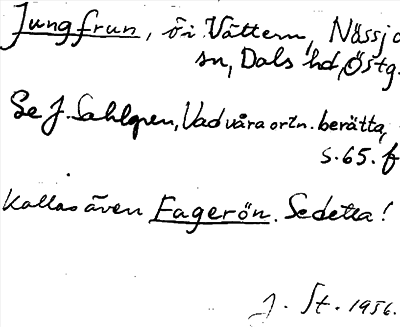 Jungfrun, ö i Vättern, Nässja
sn, Dals hd, Östg.
Se J. Sahlgren, Vad våra ortn. berätta,
s. 65. f
Kallas även Fagerön. Se detta!
J. St. 1956.